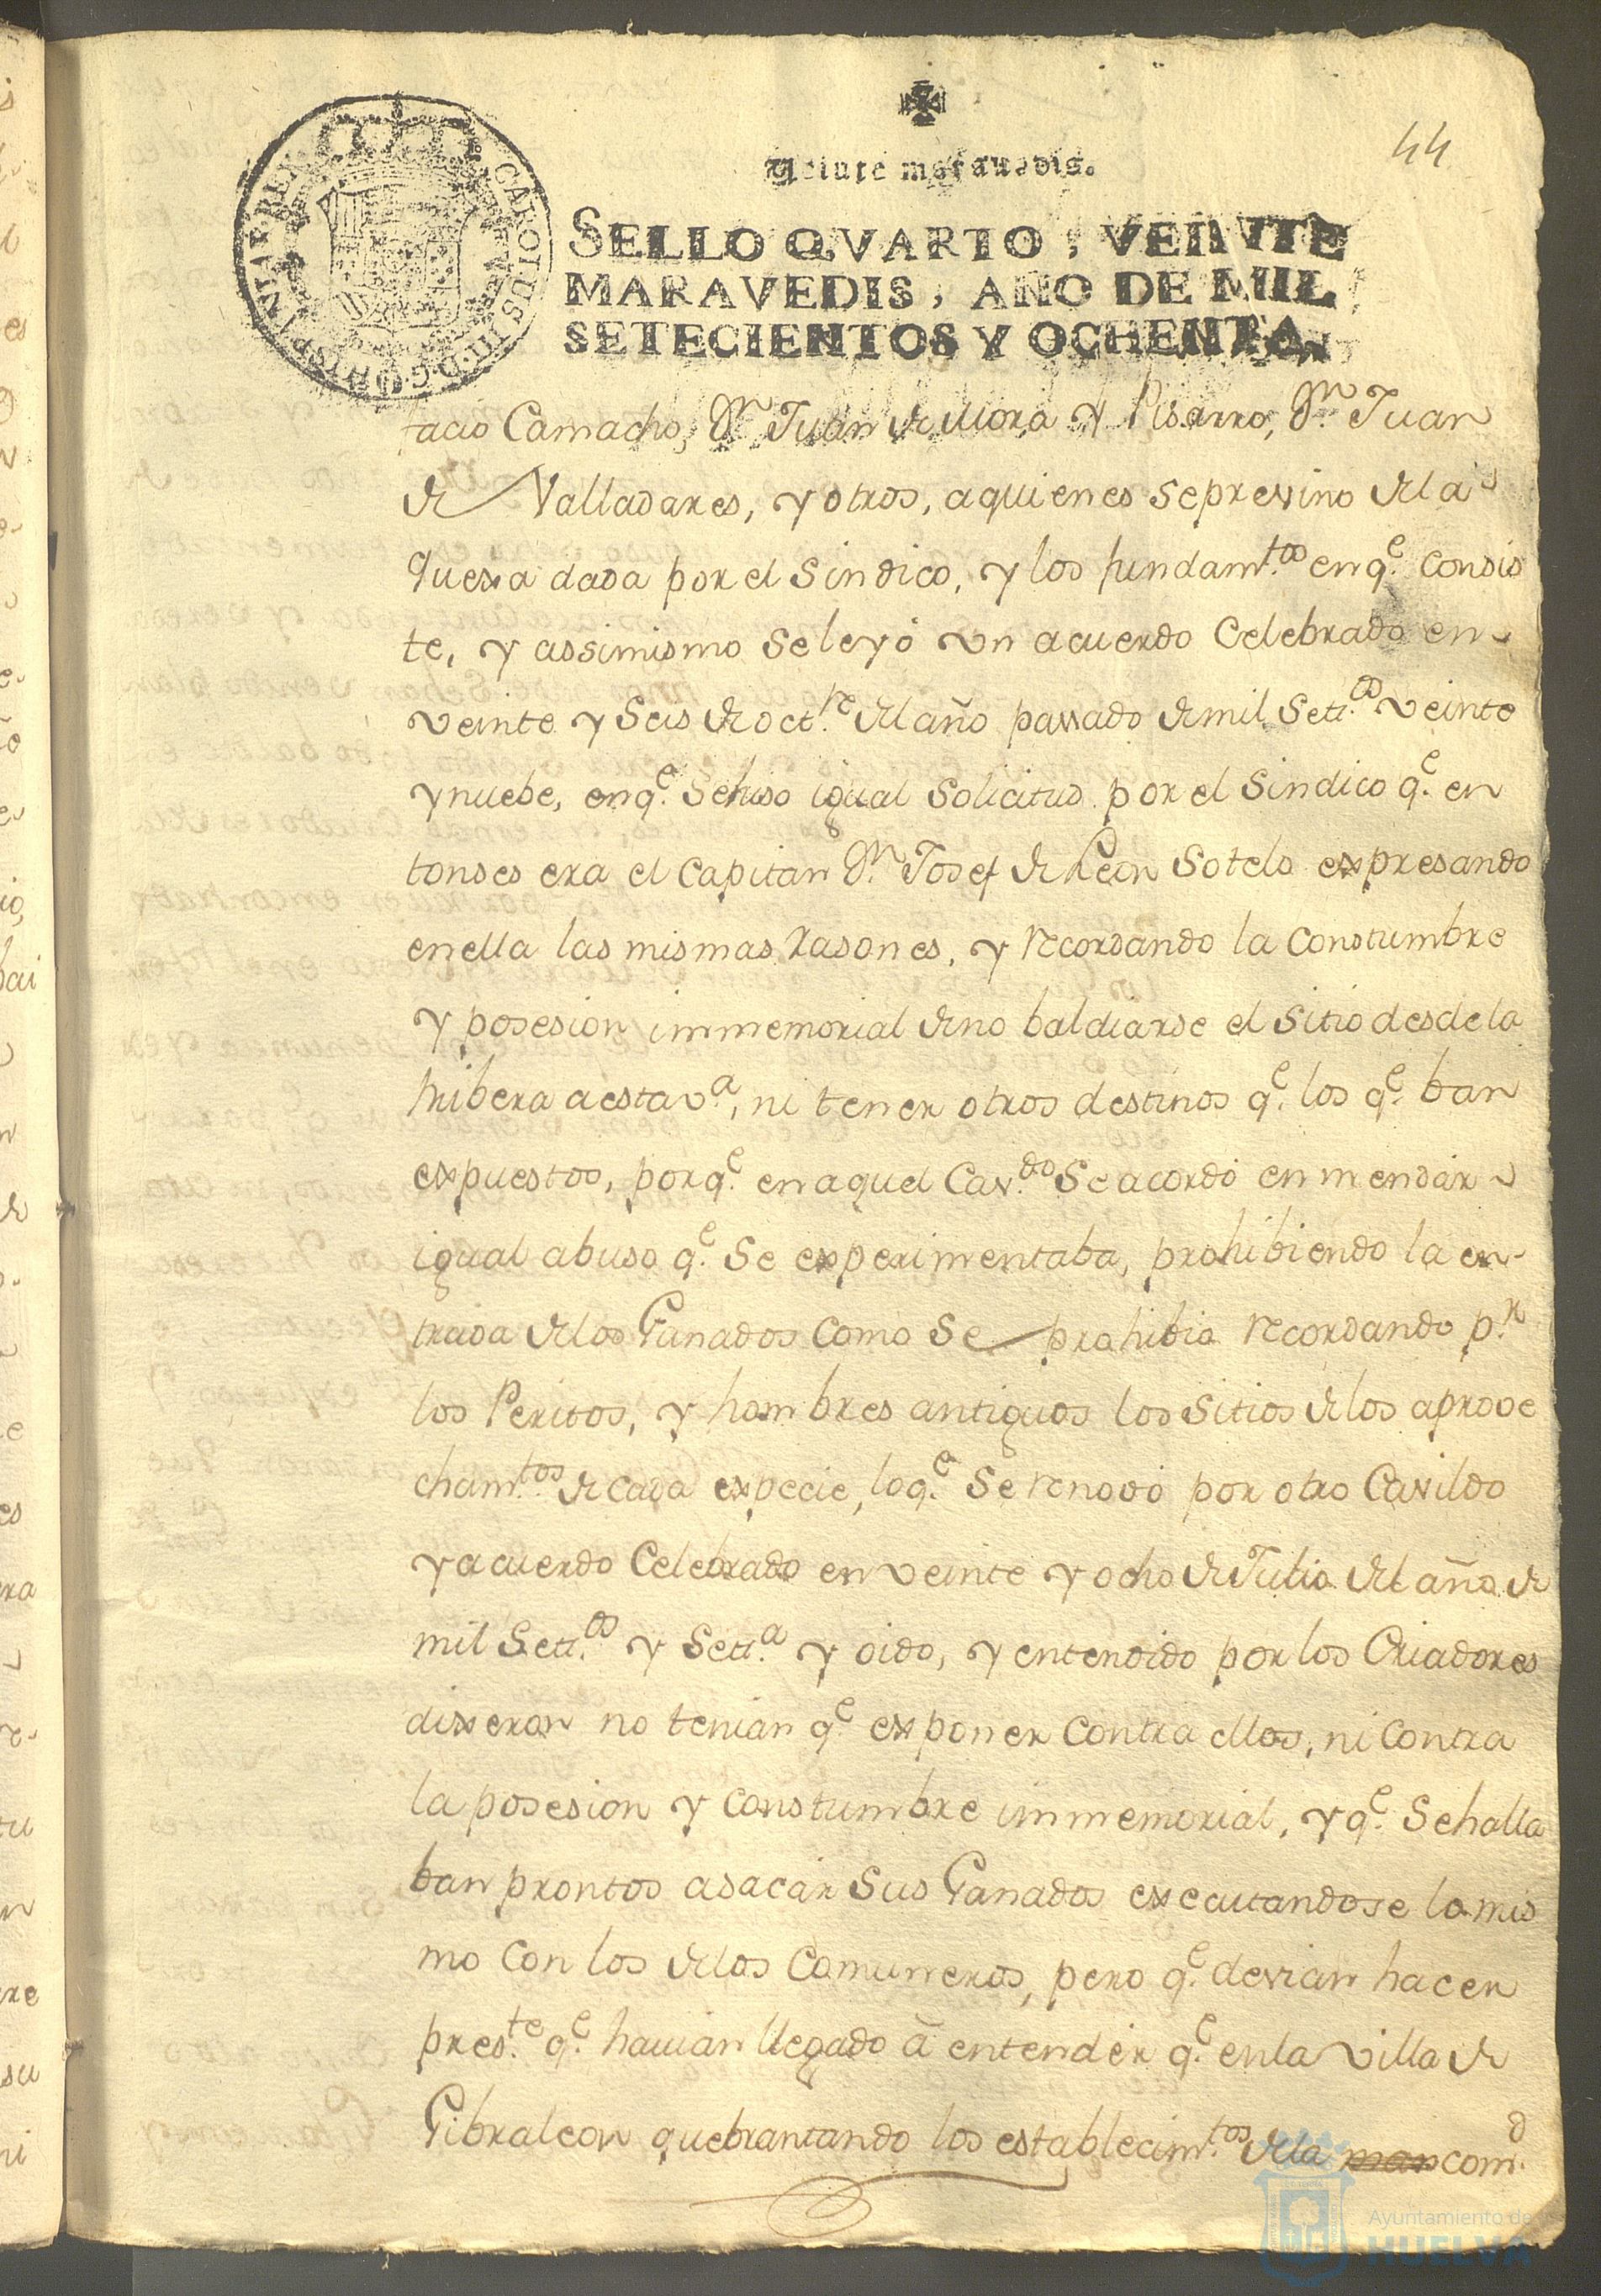 44
Veinte maravedis.
SELLO QVARTO, VEINTE
MARAVEDIS, AÑO DE MIL
SETECIENTOS Y OCHENTA.
CAROLUS III D G HISPANIAR REX
tacio Camacho, Dn. Juan de Mora y Pisarro, Dn. Juan
de Valladares, y otros, a quienes se previno de la
quexa dada por el Sindico, y los fundamtos. en qe. consis
te, y assimismo se leyó un acuerdo Celebrado en
veinte y Seis de octre. del año passado de mil Setcs. veinte
y nuebe, en qe. se hiso igual Solicitud por el Sindico qe. en
tonses era el Capitan Dn. Josef de Leon Sotelo expresando
en ella las mismas rasones, y recordando la Constumbre
y posesion immemorial de no baldiarse el Sitio desde la
Ribera a esta va., ni tener otros destinos qe. los qe. ban
expuestos, por qe. en aquel Cavdo. Se acordó enmendar
igual abuso qe. Se experimentaba, prohibiendo la en-
trada de los Ganados como Se prohibia recordando pr.
los Peritos, y hombres antiguos los Sitios de los aprove
chamtos. de cada expecie, lo qe. Se renovó por otro Cavildo
y acuerdo Celebrado en veinte y ocho de Julio del año de
mil Setcs. y Setta. y oido, y entendido por los Criadores
dixeron no tenian qe. exponer contra ellos, ni contra
la posesion y constumbre immemorial, y qe. Se halla
ban prontos a sacar Sus Ganados executandose lo mis
mo con los de los Comuneros, pero qe. devian hacer
preste. qe. havian llegado â entender qe. en la villa de
Gibraleon quebrantando los establecimtos. de la man comd.
Ayuntamiento de
HUELVA